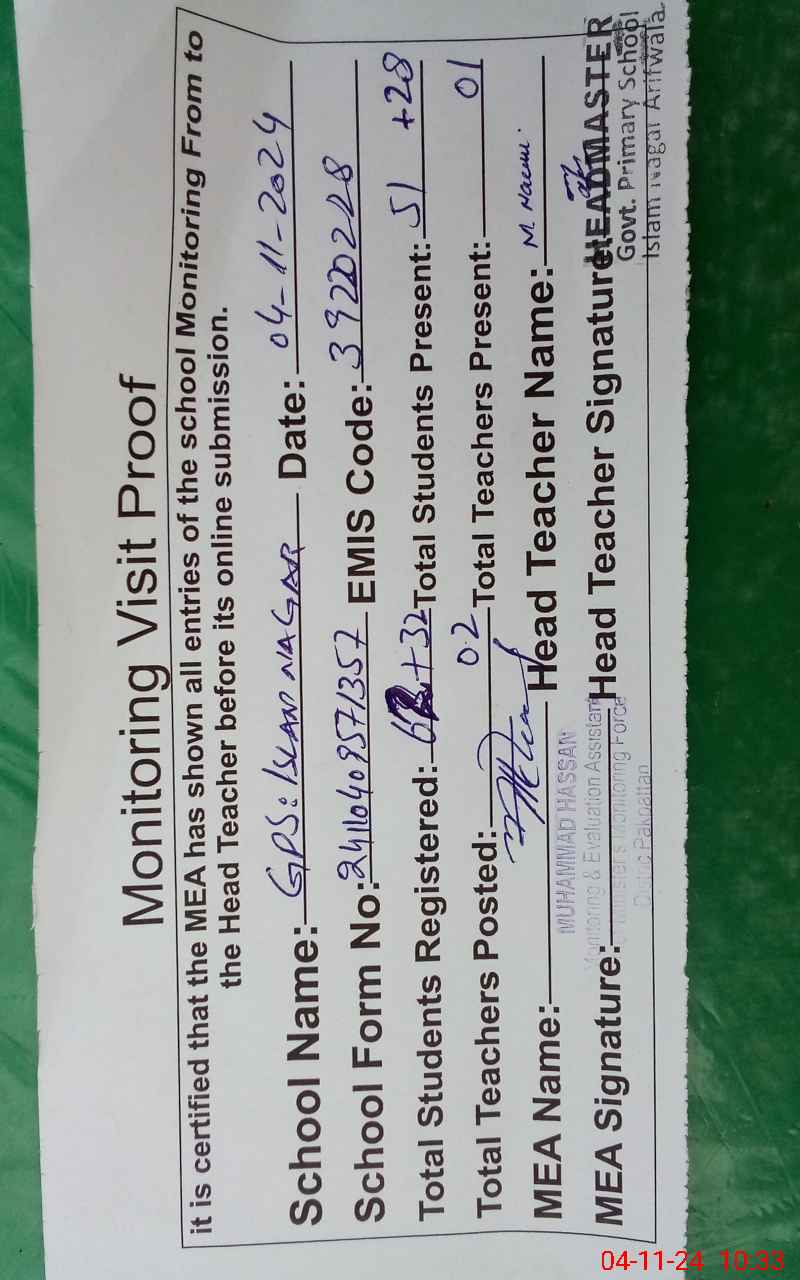 Monitoring Visit Proof
it is certified that the MEA has shown all entries of the school Monitoring From to
the Head Teacher before its online submission.
School Name: GPS: ISLAM NAGAR Date: 04-11-2024
School Form No: EMIS Code: 39220228
Total Students Registered: +32 Total Students Present: 51 +28
Total Teachers Posted: 02 Total Teachers Present: 01
MEA Name: Head Teacher Name: M. Naeem
MUHAMMAD HASSAN
Monitoring & Evaluation Assistant
Minister's Monitoring Force
District Pakpattan
MEA Signature: Head Teacher Signature:
HEADMASTER
Govt. Primary School
Islam Nagar Arifwala.
04-11-24 10:33